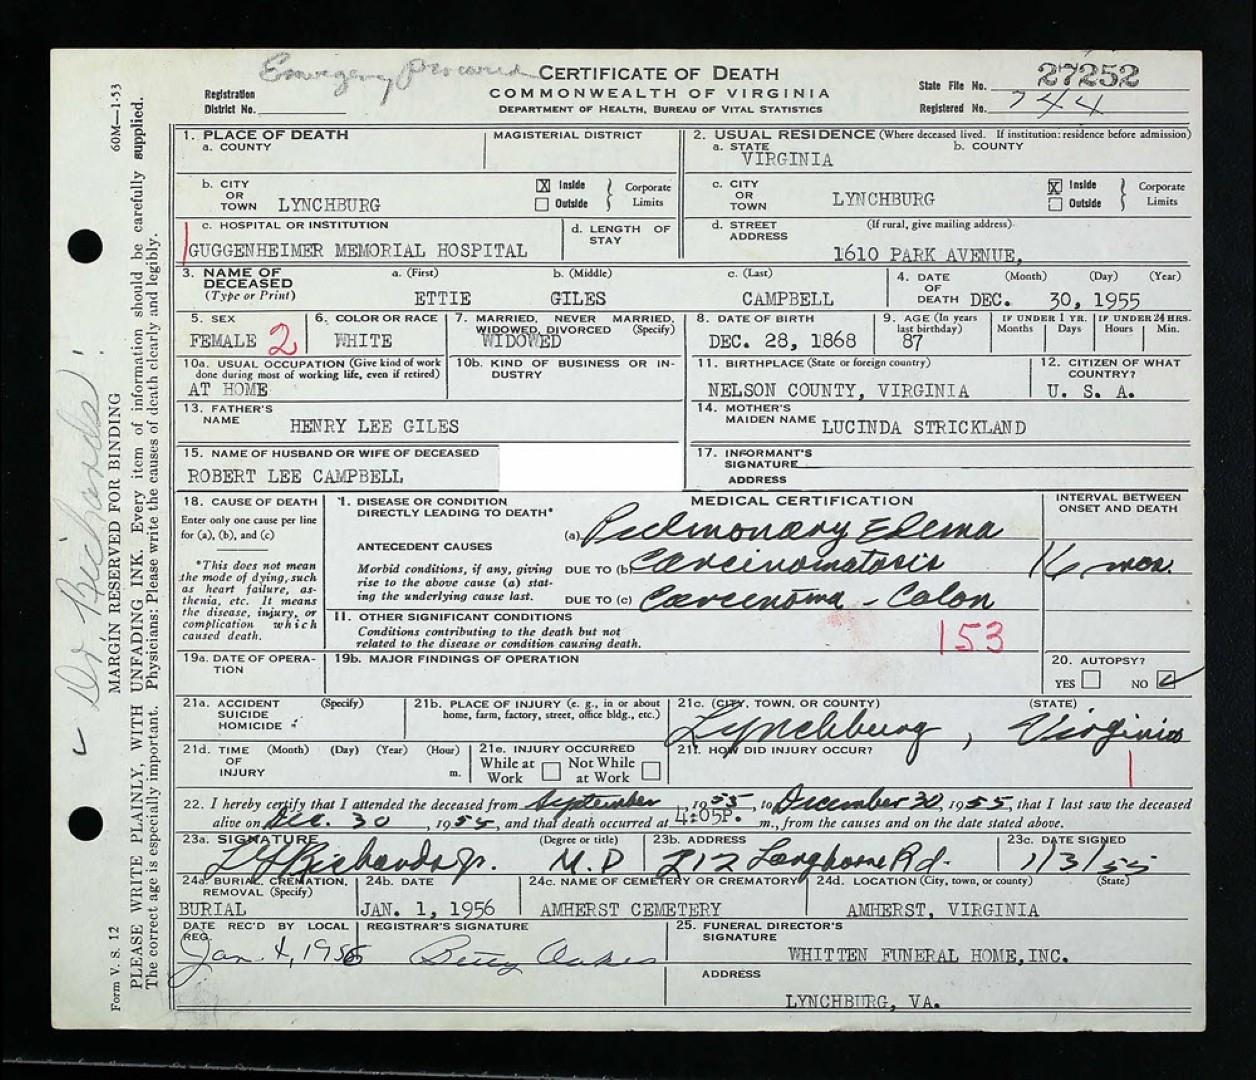 Emergency Procured CERTIFICATE OF DEATH
COMMONWEALTH OF VIRGINIA
DEPARTMENT OF HEALTH, BUREAU OF VITAL STATISTICS
Registration District No.
State File No. 27252
Registered No. 744
1. PLACE OF DEATH
a. COUNTY
MAGISTERIAL DISTRICT
2. USUAL RESIDENCE (Where deceased lived. If institution: residence before admission)
a. STATE VIRGINIA
b. COUNTY
b. CITY OR TOWN LYNCHBURG
X Inside Outside Corporate Limits
c. CITY OR TOWN LYNCHBURG
X Inside Outside Corporate Limits
c. HOSPITAL OR INSTITUTION
GUGGENHEIMER MEMORIAL HOSPITAL
d. LENGTH OF STAY
d. STREET ADDRESS (If rural, give mailing address)
1610 PARK AVENUE,
3. NAME OF DECEASED (Type or Print)
a. (First) b. (Middle) c. (Last)
ETTIE GILES CAMPBELL
4. DATE OF DEATH (Month) (Day) (Year)
DEC. 30, 1955
5. SEX
FEMALE 2
6. COLOR OR RACE
WHITE
7. MARRIED, NEVER MARRIED, WIDOWED, DIVORCED (Specify)
WIDOWED
8. DATE OF BIRTH
DEC. 28, 1868
9. AGE (In years last birthday)
87
IF UNDER 1 YR. Months Days
IF UNDER 24 HRS. Hours Min.
10a. USUAL OCCUPATION (Give kind of work done during most of working life, even if retired)
AT HOME
10b. KIND OF BUSINESS OR INDUSTRY
11. BIRTHPLACE (State or foreign country)
NELSON COUNTY, VIRGINIA
12. CITIZEN OF WHAT COUNTRY?
U. S. A.
13. FATHER'S NAME HENRY LEE GILES
14. MOTHER'S MAIDEN NAME LUCINDA STRICKLAND
15. NAME OF HUSBAND OR WIFE OF DECEASED
ROBERT LEE CAMPBELL
17. INFORMANT'S SIGNATURE
ADDRESS
18. CAUSE OF DEATH
Enter only one cause per line for (a), (b), and (c)
*This does not mean the mode of dying, such as heart failure, asthenia, etc. It means the disease, injury, or complication which caused death.
MEDICAL CERTIFICATION
INTERVAL BETWEEN ONSET AND DEATH
1. DISEASE OR CONDITION DIRECTLY LEADING TO DEATH*
(a) Pulmonary Edema
ANTECEDENT CAUSES
Morbid conditions, if any, giving rise to the above cause (a) stating the underlying cause last.
DUE TO (b) Carcinomatosis 16 mos.
DUE TO (c) Carcinoma - Colon
II. OTHER SIGNIFICANT CONDITIONS
Conditions contributing to the death but not related to the disease or condition causing death.
153
19a. DATE OF OPERATION
19b. MAJOR FINDINGS OF OPERATION
20. AUTOPSY?
YES NO ✓
21a. ACCIDENT SUICIDE HOMICIDE (Specify)
21b. PLACE OF INJURY (e. g., in or about home, farm, factory, street, office bldg., etc.)
21c. (CITY, TOWN, OR COUNTY) (STATE)
Lynchburg, Virginia
21d. TIME OF INJURY (Month) (Day) (Year) (Hour) m.
21e. INJURY OCCURRED
While at Work Not While at Work
21f. HOW DID INJURY OCCUR?
22. I hereby certify that I attended the deceased from September, 1955, to December 30, 1955, that I last saw the deceased
alive on Dec. 30, 1955, and that death occurred at 4:05P. m., from the causes and on the date stated above.
23a. SIGNATURE (Degree or title)
L J Richards Jr. M.D
23b. ADDRESS
212 Langhorne Rd.
23c. DATE SIGNED
1/3/55
24a. BURIAL, CREMATION, REMOVAL (Specify)
BURIAL
24b. DATE
JAN. 1, 1956
24c. NAME OF CEMETERY OR CREMATORY
AMHERST CEMETERY
24d. LOCATION (City, town, or county) (State)
AMHERST, VIRGINIA
DATE REC'D BY LOCAL REG.
Jan. 4, 1956
REGISTRAR'S SIGNATURE
Betty Oakes
25. FUNERAL DIRECTOR'S SIGNATURE
WHITTEN FUNERAL HOME, INC.
ADDRESS
LYNCHBURG, VA.
Form V. S. 12
60M—1-53
MARGIN RESERVED FOR BINDING
PLEASE WRITE PLAINLY, WITH UNFADING INK. Every item of information should be carefully supplied.
The correct age is especially important. Physicians: Please write the causes of death clearly and legibly.
Dr. Richards!